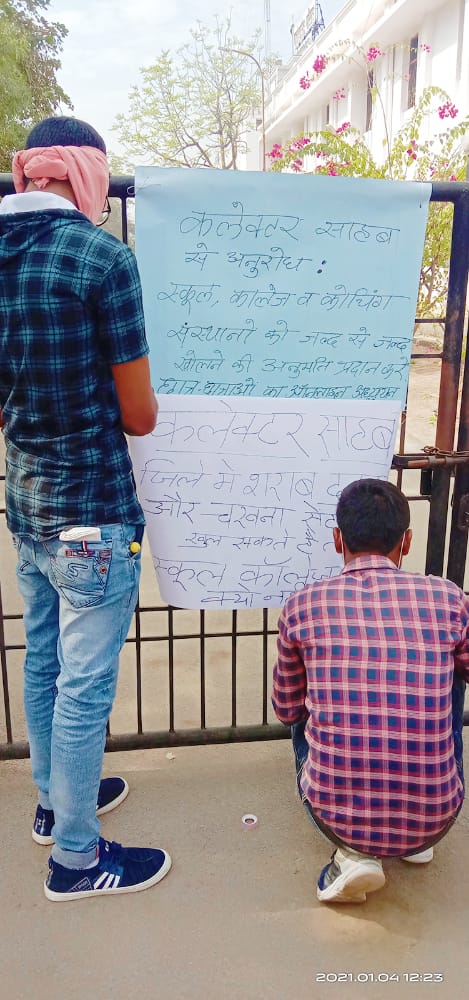 कलेक्टर साहब
से अनुरोध :
स्कूल, कालेज व कोचिंग
संस्थानो को जल्द से जल्द
खोलने की अनुमति प्रदान करे
छात्र-छात्राओ का ऑनलाइन
कलेक्टर साहब
जिले मे शराब
और चखना सेंटर
खुल सकते
स्कूल कॉलेज
क्यो
2021.01.04 12:23